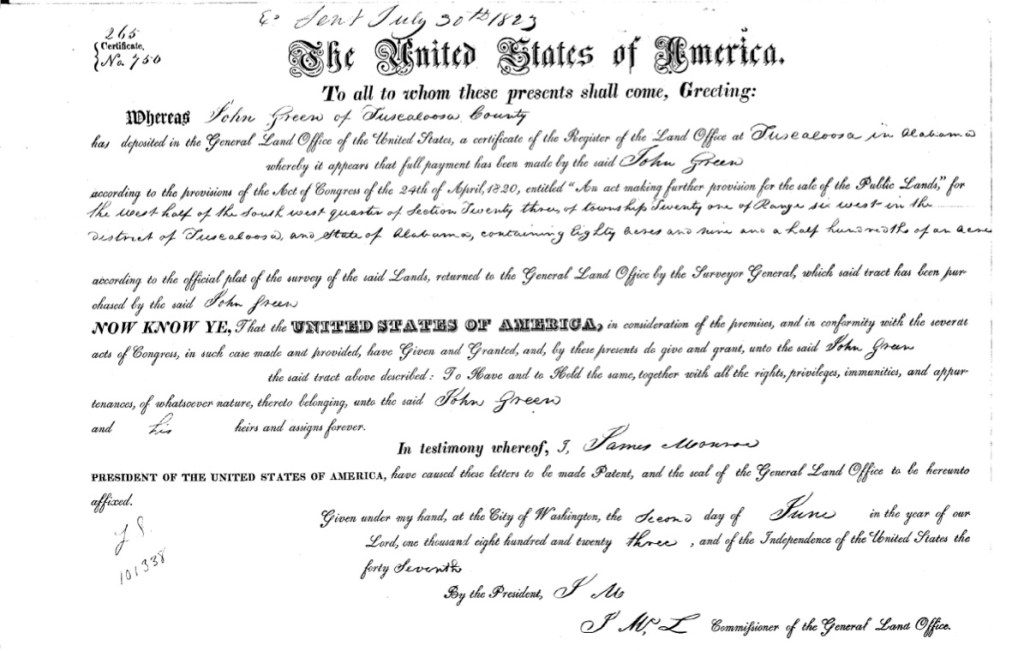 & Sent July 30th 1823
265
Certificate,
No. 750
The United States of America.
To all to whom these presents shall come, Greeting:
Whereas John Green of Tuscaloosa County
has deposited in the General Land Office of the United States, a certificate of the Register of the Land Office at Tuscaloosa in Alabama
whereby it appears that full payment has been made by the said John Green
according to the provisions of the Act of Congress of the 24th of April, 1820, entitled "An act making further provision for the sale of the Public Lands," for
the west half of the South west quarter of Section Twenty three, of township Twenty one of Range six west in the
district of Tuscaloosa, and State of Alabama, containing Eighty acres and nine and a half hundredths of an acre
according to the official plat of the survey of the said Lands, returned to the General Land Office by the Surveyor General, which said tract has been pur-
chased by the said John Green
NOW KNOW YE, That the UNITED STATES OF AMERICA, in consideration of the premises, and in conformity with the several
acts of Congress, in such case made and provided, have Given and Granted, and, by these presents do give and grant, unto the said John Green
the said tract above described: To Have and to Hold the same, together with all the rights, privileges, immunities, and appur-
tenances, of whatsoever nature, thereto belonging, unto the said John Green
and his heirs and assigns forever.
In testimony whereof, I, James Monroe
PRESIDENT OF THE UNITED STATES OF AMERICA, have caused these letters to be made Patent, and the seal of the General Land Office to be hereunto
affixed.
Given under my hand, at the City of Washington, the Second day of June in the year of our
Lord, one thousand eight hundred and twenty three, and of the Independence of the United States the
forty Seventh
L S.
101338
By the President, J M
J Mc L Commissioner of the General Land Office.